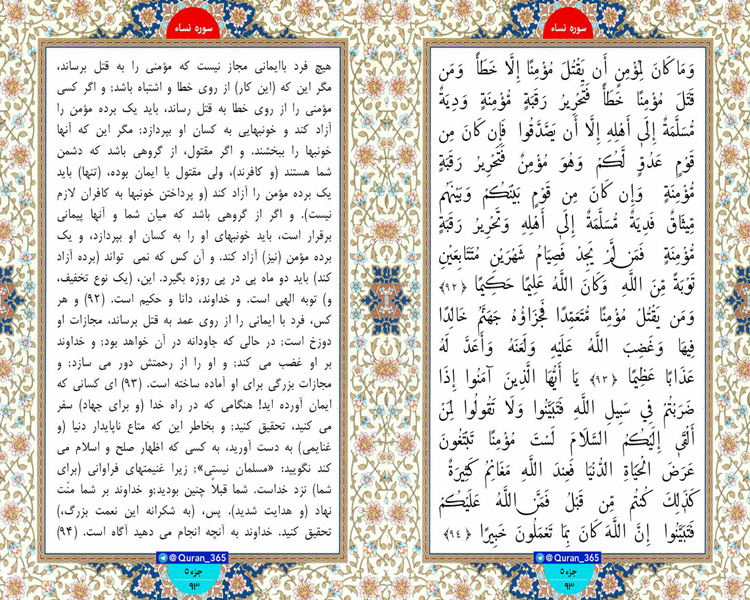 سوره نساء
وَمَا كَانَ لِمُؤْمِنٍ أَن يَقْتُلَ مُؤْمِنًا إِلَّا خَطَأً وَمَن
قَتَلَ مُؤْمِنًا خَطَأً فَتَحْرِيرُ رَقَبَةٍ مُّؤْمِنَةٍ وَدِيَةٌ
مُّسَلَّمَةٌ إِلَىٰ أَهْلِهِ إِلَّا أَن يَصَّدَّقُوا فَإِن كَانَ مِن
قَوْمٍ عَدُوٍّ لَّكُمْ وَهُوَ مُؤْمِنٌ فَتَحْرِيرُ رَقَبَةٍ
مُّؤْمِنَةٍ وَإِن كَانَ مِن قَوْمٍ بَيْنَكُمْ وَبَيْنَهُم
مِّيثَاقٌ فَدِيَةٌ مُّسَلَّمَةٌ إِلَىٰ أَهْلِهِ وَتَحْرِيرُ رَقَبَةٍ
مُّؤْمِنَةٍ فَمَن لَّمْ يَجِدْ فَصِيَامُ شَهْرَيْنِ مُتَتَابِعَيْنِ
تَوْبَةً مِّنَ اللَّهِ وَكَانَ اللَّهُ عَلِيمًا حَكِيمًا ﴿۹۲﴾
وَمَن يَقْتُلْ مُؤْمِنًا مُّتَعَمِّدًا فَجَزَاؤُهُ جَهَنَّمُ خَالِدًا
فِيهَا وَغَضِبَ اللَّهُ عَلَيْهِ وَلَعَنَهُ وَأَعَدَّ لَهُ
عَذَابًا عَظِيمًا ﴿۹۳﴾ يَا أَيُّهَا الَّذِينَ آمَنُوا إِذَا
ضَرَبْتُمْ فِي سَبِيلِ اللَّهِ فَتَبَيَّنُوا وَلَا تَقُولُوا لِمَنْ
أَلْقَىٰ إِلَيْكُمُ السَّلَامَ لَسْتَ مُؤْمِنًا تَبْتَغُونَ
عَرَضَ الْحَيَاةِ الدُّنْيَا فَعِندَ اللَّهِ مَغَانِمُ كَثِيرَةٌ
كَذَٰلِكَ كُنتُم مِّن قَبْلُ فَمَنَّ اللَّهُ عَلَيْكُمْ
فَتَبَيَّنُوا إِنَّ اللَّهَ كَانَ بِمَا تَعْمَلُونَ خَبِيرًا ﴿۹٤﴾
@Quran_365
جزء ۵
۹۳
سوره نساء
هیچ فرد باایمانی مجاز نیست که مؤمنی را به قتل برساند،
مگر این که (این کار) از روی خطا و اشتباه باشد؛ و اگر کسی
مؤمنی را از روی خطا به قتل رساند، باید یک برده مؤمن را
آزاد کند و خونبهایی به کسان او بپردازد؛ مگر این که آنها
خونبها را ببخشند. و اگر مقتول، از گروهی باشد که دشمن
شما هستند (و کافرند)، ولی مقتول با ایمان بوده، (تنها) باید
یک برده مؤمن را آزاد کند (و پرداختن خونبها به کافران لازم
نیست). و اگر از گروهی باشد که میان شما و آنها پیمانی
برقرار است، باید خونبهای او را به کسان او بپردازد، و یک
برده مؤمن (نیز) آزاد کند. و آن کس که نمی تواند (برده آزاد
کند) باید دو ماه پی در پی روزه بگیرد. این، (یک نوع تخفیف،
و) توبه الهی است. و خداوند، دانا و حکیم است. (۹۲) و هر
کس، فرد با ایمانی را از روی عمد به قتل برساند، مجازات او
دوزخ است؛ در حالی که جاودانه در آن خواهد بود؛ و خداوند
بر او غضب می کند؛ و او را از رحمتش دور می سازد؛ و
مجازات بزرگی برای او آماده ساخته است. (۹۳) ای کسانی که
ایمان آورده اید! هنگامی که در راه خدا (و برای جهاد) سفر
می کنید، تحقیق کنید; و بخاطر این که متاع ناپایدار دنیا (و
غنایمی) به دست آورید، به کسی که اظهار صلح و اسلام می
کند نگویید: «مسلمان نیستی»; زیرا غنیمتهای فراوانی (برای
شما) نزد خداست. شما قبلاً چنین بودید;و خداوند بر شما منّت
نهاد (و هدایت شدید). پس، (به شکرانه این نعمت بزرگ،)
تحقیق کنید. خداوند به آنچه انجام می دهید آگاه است. (۹۴)
@Quran_365
جزء ۵
۹۳